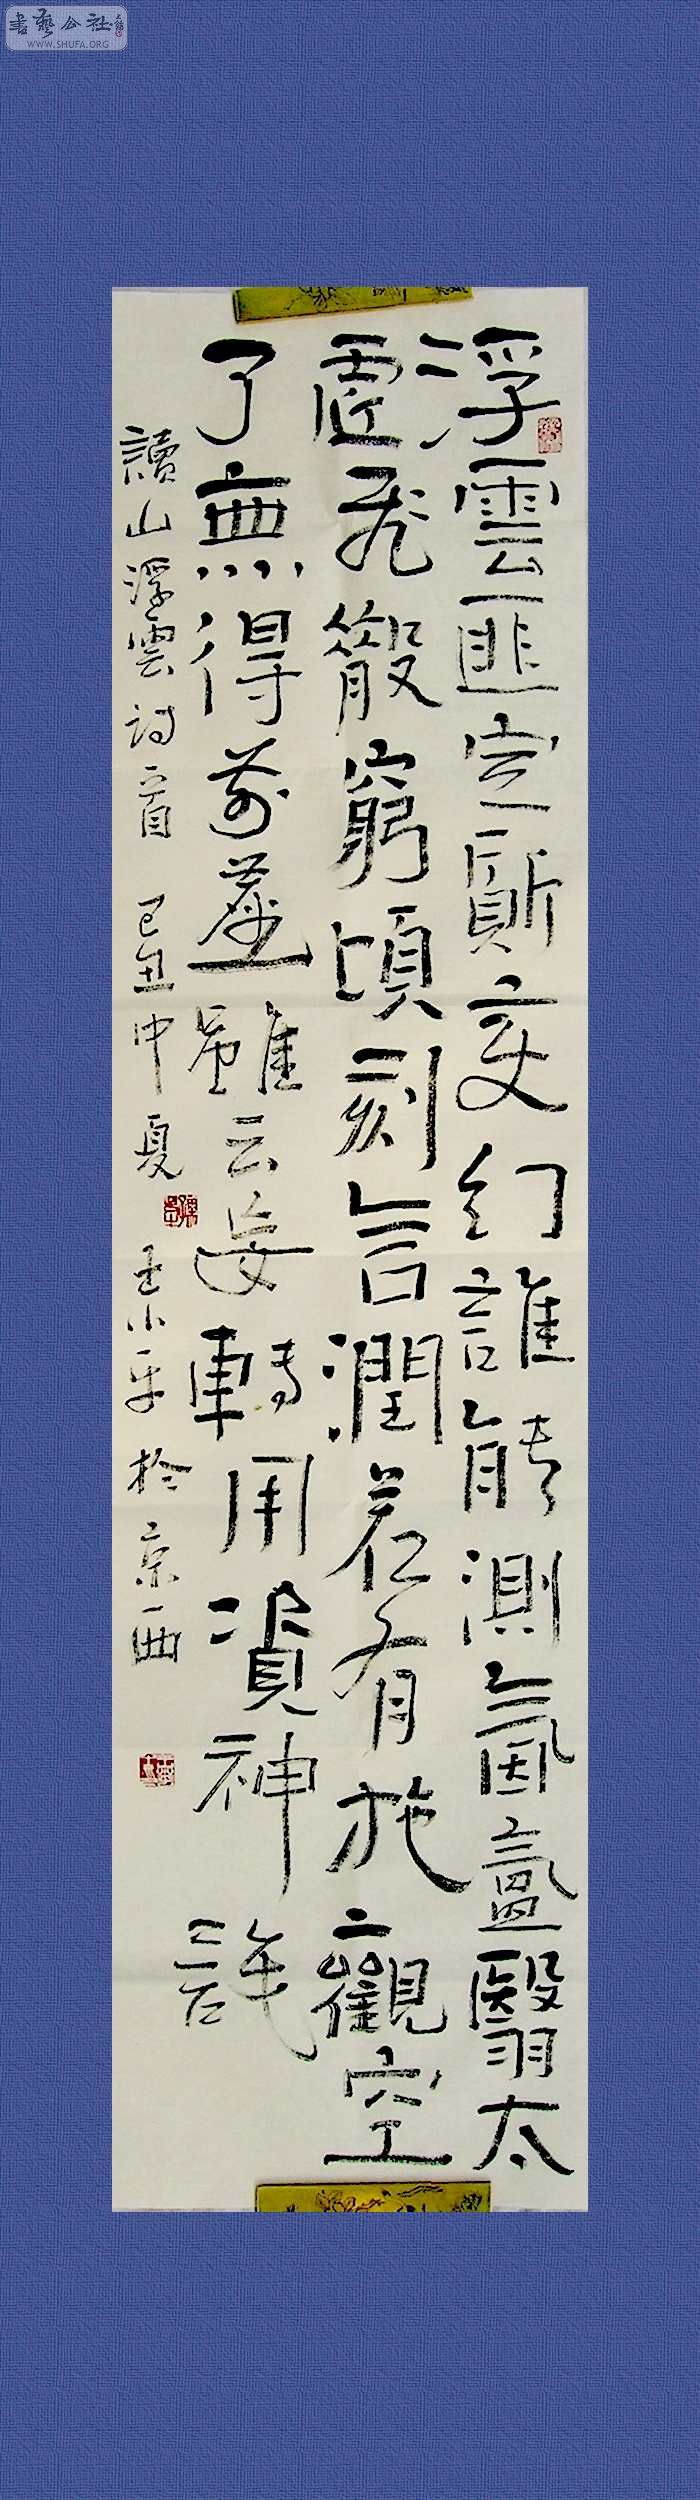 書藝公社
WWW.SHUFA.ORG
浮雲匪定質变幻誰能測氤氳翳太
虛飛散窮頃刻言潤若有施觀空
了無得前塵雖云妄轉用資神識
讀山浮雲詩一首 己丑中夏 王小平於京西